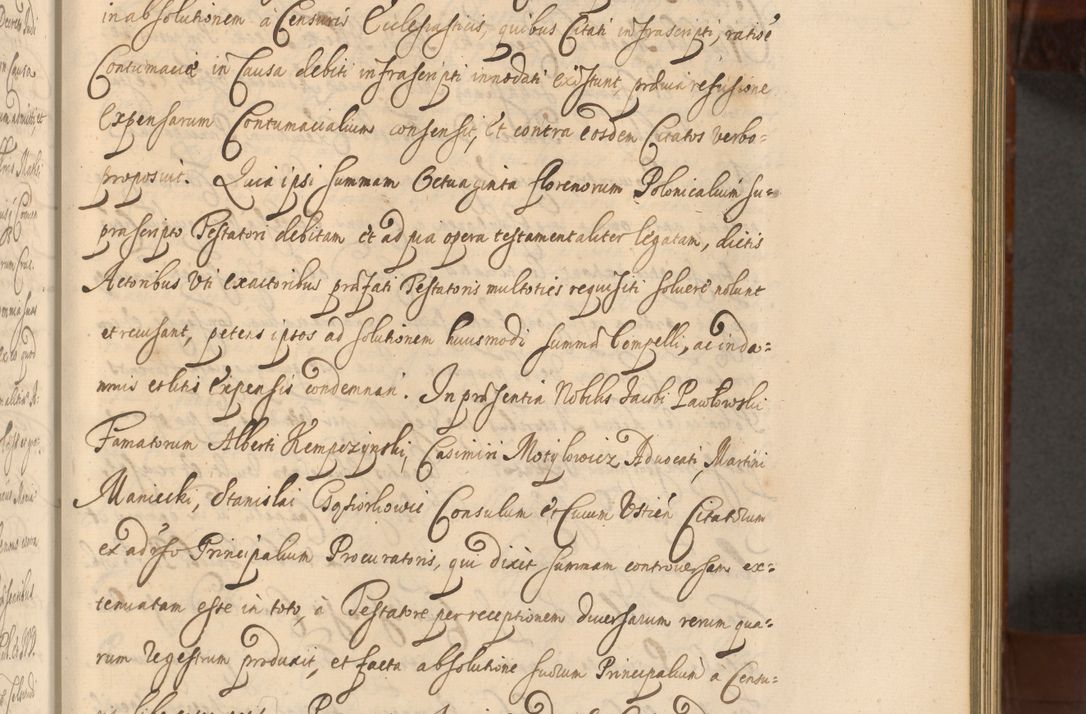 in absolutionem à Censuris Ecclesiasticis, quibus Citati infrascripti, ratione
Contumaciæ in Causa debiti infrascripti innodati existunt, prævia refusione
Expensarum Contumacialium consensit, Et contra eosdem Citatos verbo=
proposuit. Quia ipsi summam Octuaginta florenorum Polonicalium su=
prascripto Testatori debitam et ad pia opera testamentaliter legatam, dictis
Actoribus Uti exactoribus præfati Testatoris multoties requisiti solvere nolunt
et recusant, petens ipsos ad solutionem huiusmodi summæ Compelli, ac in da=
mnis et litis Expensis condemnari. In præsentia Nobilis Jacobi Pawłowski
Famatorum Alberti Kempczynski, Casimiri Motylowicz Advocati, Martini
Maniecki, Stanislai Consulum et Civium Ustien Citatorum
ex adverso Principalium Procuratoris, qui dixit summam controversam ex=
tenuatam esse in toto, à Testatore per receptionem diversarum rerum qua=
rum regestrum produxit, et facta absolutione suorum Principalium à Censu=